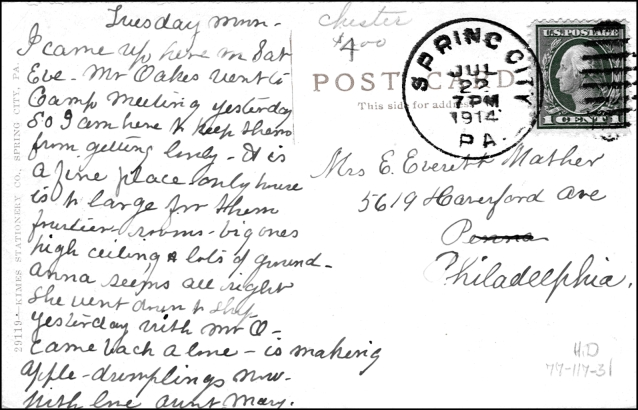 Tuesday morn-
I came up here on Sat
Eve - Mr Oakes went to
Camp meeting yesterday
So I am here to keep them
from getting lonely - It is
a fine place only house
is to large for them
rooms - big ones
high ceiling, & lots of ground -
Anna seems all right
She went down to
yesterday with Mr O -
Came back alone - is making
apple-dumplings now -
With love Aunt Mary.
Chester
4.00
POST CARD
This side for address
SPRING CITY
JUL
22
7 PM
1914
PA.
U.S. POSTAGE
1 CENT 1
Mrs E. Everett Mather
5619 Haverford Ave
Penna
Philadelphia.
H.D
77-117-31
29119 - KIMES STATIONERY CO., SPRING CITY, PA.